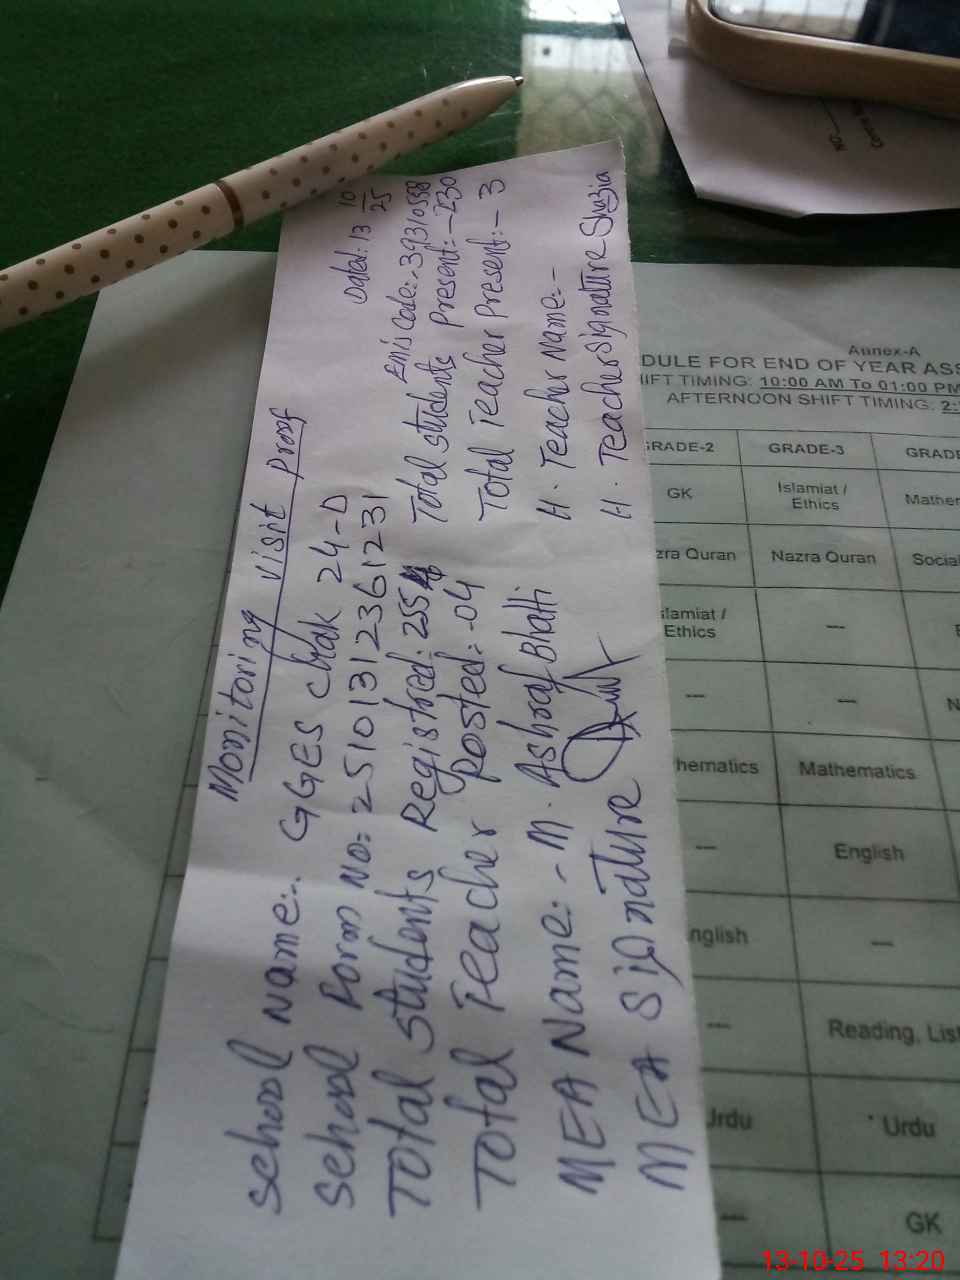 Monitoring visit proof
Dated: 13 10/25
School Name:- GGES Chak 24-D
School Form No:- 2510131236 1231
Emis Code:- 39310558
Total Students Registred: 255
Total students present:- 230
Total Teacher posted:- 04
Total Teacher present:- 3
MEA Name:- M. Ashraf Bhatti
H. Teacher Name:-
MEA Signature
H. Teacher Signature Shazia
Annex-A
DULE FOR END OF YEAR ASS
IFT TIMING: 10:00 AM To 01:00 PM
AFTERNOON SHIFT TIMING: 2:
GRADE-2 GRADE-3 GRADE
GK Islamiat / Ethics Mather
zra Quran Nazra Quran Social
slamiat / Ethics ---
--- --- N
hematics Mathematics
--- English
nglish ---
--- Reading, List
Urdu Urdu
--- GK
13-10-25 13:20